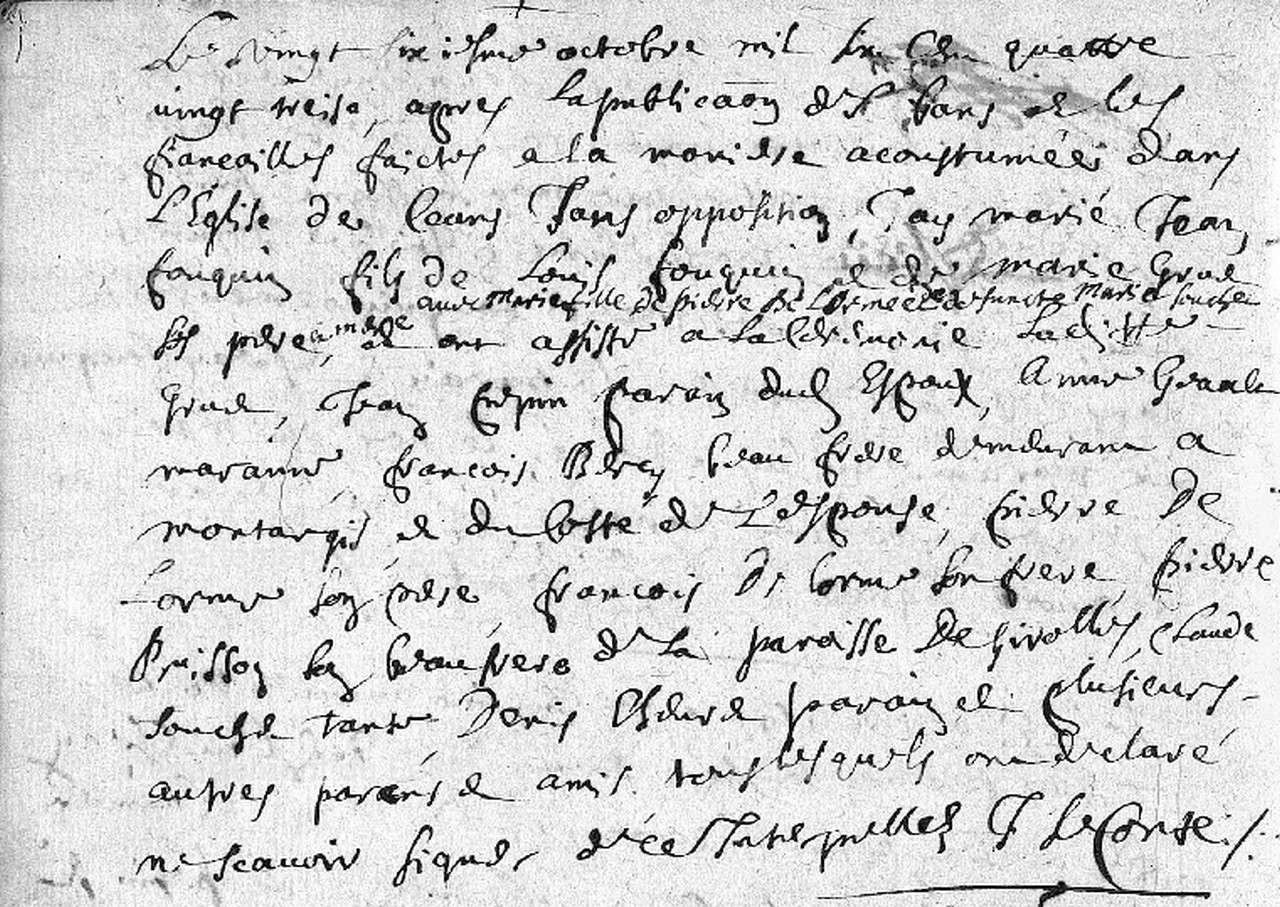 Le vingt sixiesme octobre mil six Cen quattre
vingt treise, apres la publicaon des bans et les
fiancailles faictes a la maniere acoustumées dans
L'Église de Ceans sans opposition, J'ay marié Jean
fouquin fils de Louis fouquin et de marie Grue
avec Marie fille de pierre De Lorme et de defuncte Marie souchet
ses pere et mere, et ont assisté a la Ceremonie Laditte
Grue, Jean Crepin parain dud Espoux, Anne
maranne, francois Berey beau frere demeurant a
montargis et du Costé de L'espouse, pierre De
Lorme son pere, francois De lorme son frere, pierre
Buisson son beaufrere de la paroisse De Girolles, Claude
souche tante, Denis parain et plusieurs
autres parens et amis tous lesquels ont declaré
ne scavoir signer de ce Interpelles J LeConte ./.